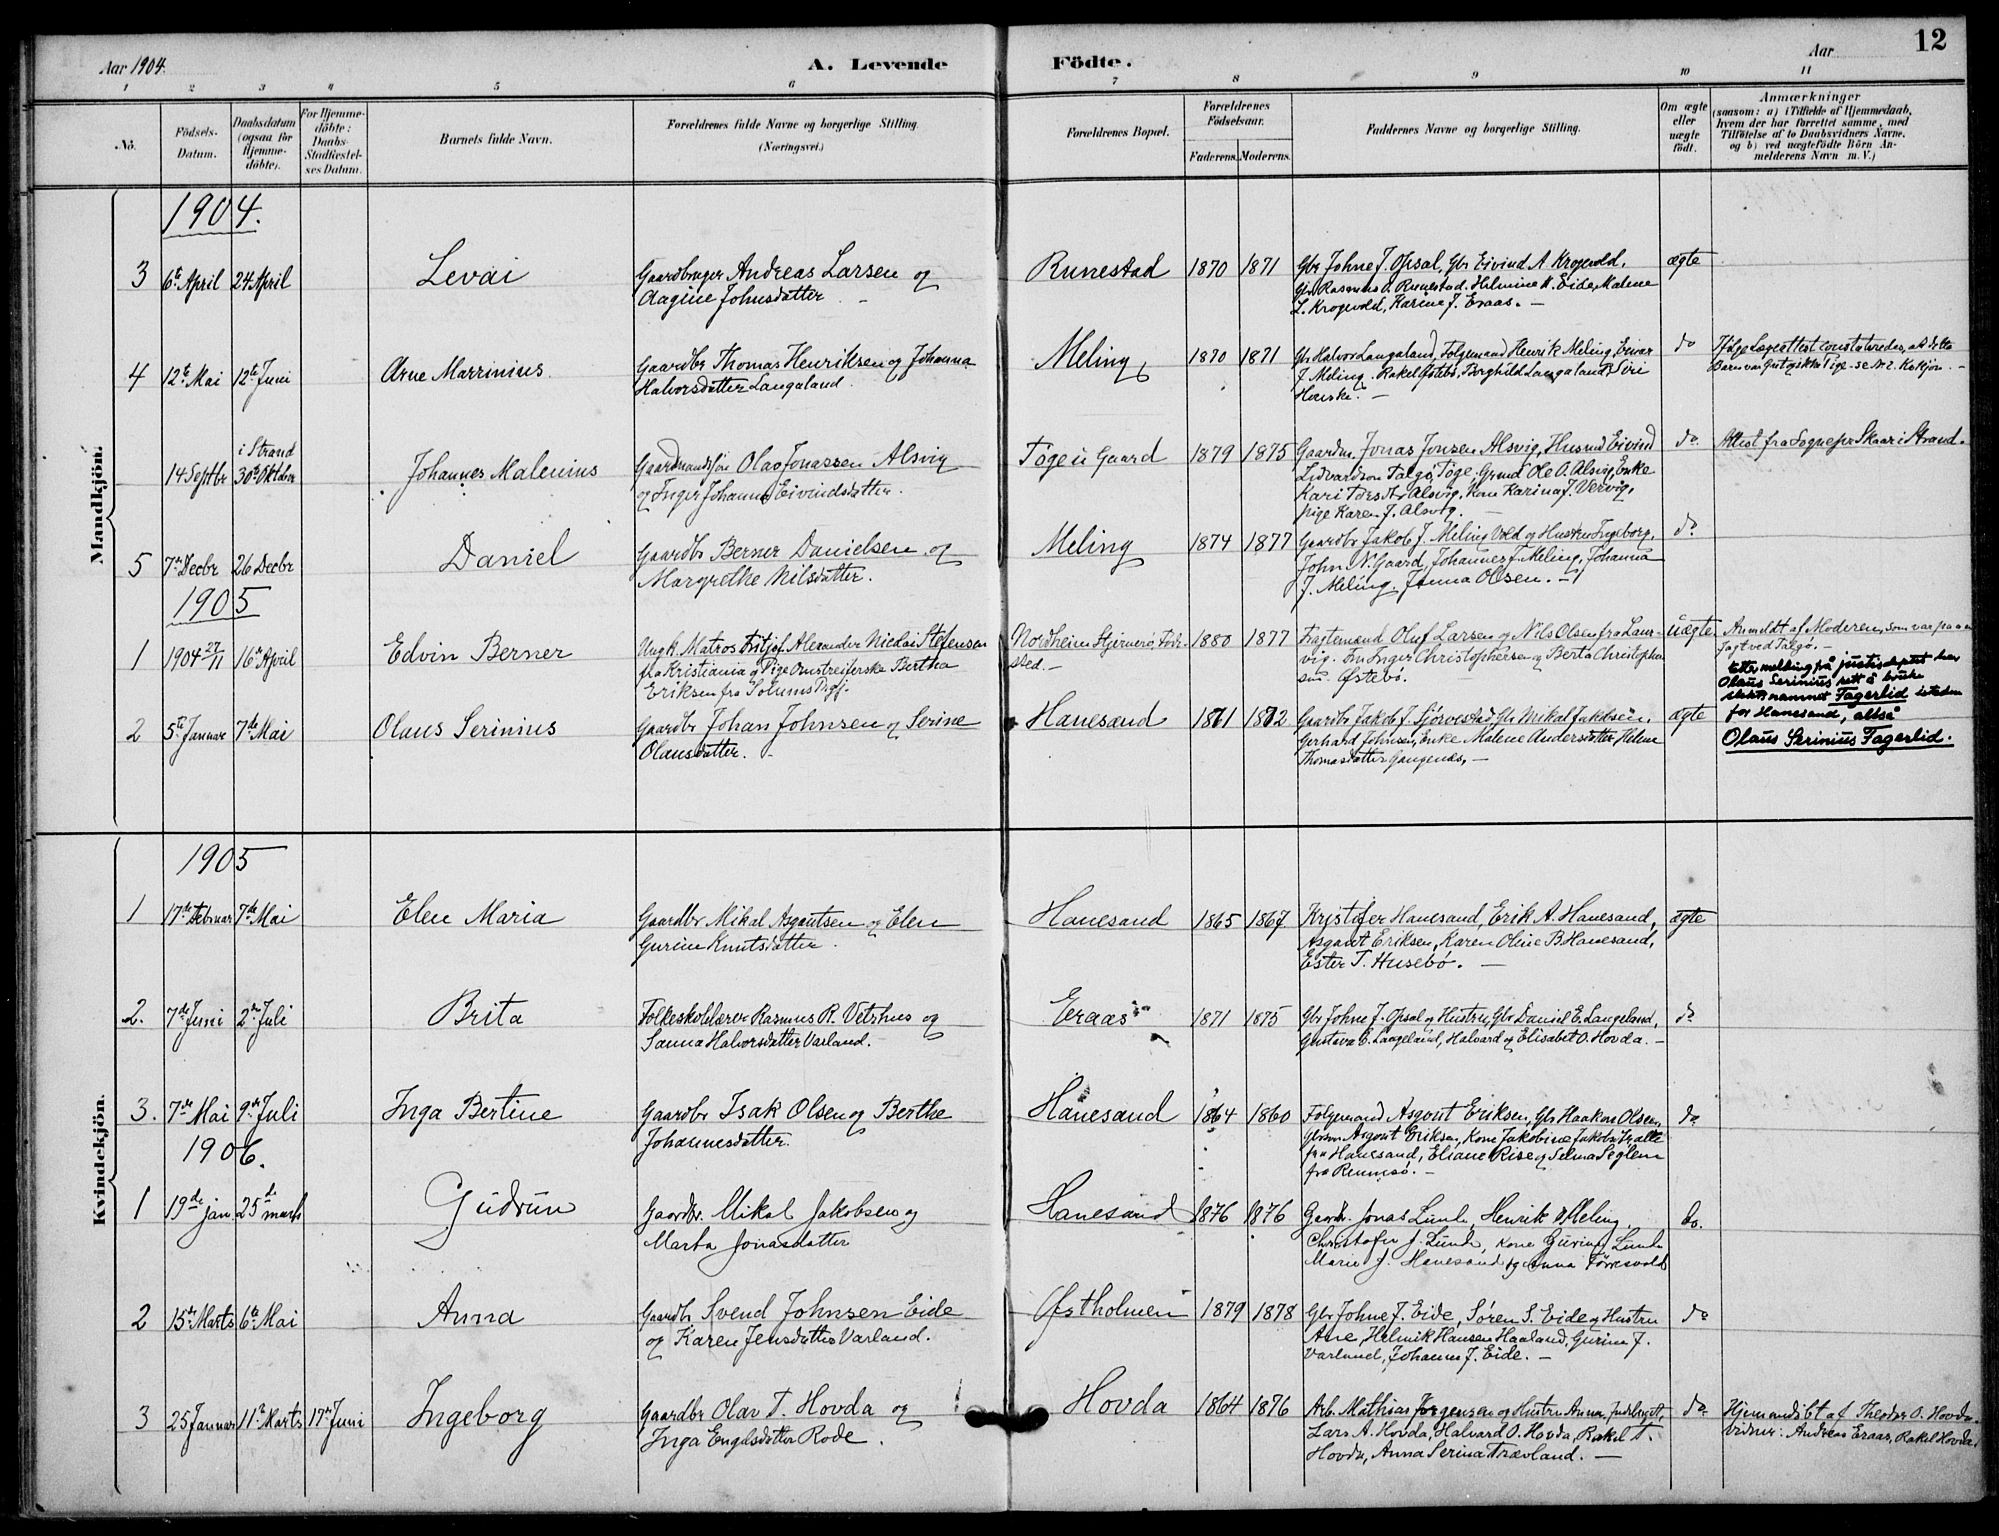 Aar 1904.
A. Levende
Födte.
Aar
12
1 2 3 4 5 6 7 8 9 10 11
No.
Födsels-
Datum.
Daabsdatum
(ogsaa for
Hjemme-
döbte).
For Hjemme-
döbte:
Daabs-
Stadfæstel-
ses Datum.
Barnets fulde Navn.
Forældrenes fulde Navne og borgerlige Stilling.
(Næringsvei.)
Forældrenes Bopæl.
Forældrenes
Födselsaar.
Faderens. Moderens.
Faddernes Navne og borgerlige Stilling.
Om ægte
eller
uægte
födt.
Anmærkninger
(saasom: a) i Tilfælde af Hjemmedaab,
hvem der har forrettet samme, med
Tilföielse af to Daabsvidners Navne.
og b) ved uægtefödte Börn An-
melderens Navn m. V.)
Mandkjön.
1904.
3 6te April 24 April
Levai
Gaardbruger Andreas Larsen og
Aagine Johnsdatter.
Runestad 1870 1871
Gbr Johne J. Opsal, Gbr Eivind A Krogevold,
Gbr Rasmus O. Runestad. Helmine M. Eide, Malene
L. Krogevold, Karine J. Eraas. —
ægte
4 12te Mai 12te Juni
Arne Marrinius.
Gaardbr Thomas Henriksen og Johanna
Halvorsdatter Langaland.
Meling 1870 1871
Gbr Halvor Langaland, Folgemand Henrik Meling, Einar
J. Meling. Rakel Østebö, Borghild Langaland, Siri
do
Ifölge Lægeattest constateredes, at dette
i Strand
14 Septbr 30te Oktober
Johannes Malenius
Gaardmandssön Olav Jonassen Alsvig
og Inger Johanna Eivindsdatter.
Töge ii Gaard 1879 1875
Gaardm. Jonas Jonsen Alsvig, Husmd Eivind
Lidvardson Talgö, Töge. Grmd Ole O. Alsvig, Enke
Kone Karina J. Vervig,
pige Karen J. Alsvig.
do
Attest fra Sognepr Skaar i Strand.
5 7de Decbr 26 Decbr
Daniel
Gaardbr Berner Danielsen og
Margrethe Nilsdatter.
Meling 1874 1877
Gaardbr Jakob J. Meling Vold og Hustru Ingeborg,
John N. Gaard, Johannes J. Meling, Johanna
J. Meling, Janna Olsen. —
do
1905
1 1904 27/11 16de April
Edvin Berner
Ungk. Matros Fritjof Alexander Nicolai Stefensen
fra Kristiania og Pige Omstreiferske Bertha
Eriksen fra Solums Prgj.
Nordheim Stjernerö, Föde-
sted. —
1880 1877
Fragtemænd Oluf Larsen og Nils Olsen fra Laur-
vig. Fru Inger Christophersen og Berta Christopher-
sen. Østebö.
uægte
Anmeldt af Moderen, som var paa en
Jagt ved Talgö. —
2 5te Januar 7de Mai
Olaus Serinius
Gaardbr Johan Johnsen og Serine
Olausdatter. —
Hanesand 1871 1872
Gaardbr Jakob J. Sjörvestad, Gbr Mikal Jakobsen,
Gerhard Johnsen, Enke Malene Andersdatter, Helene
Thomasdatter Gangenæs. —
ægte
Etter melding frå justisdeptet har
Olaus Serinius rett å bruke
slektsnamnet Fagerlid isteden
for Hanesand, altså
Olaus Serinius Fagerlid.
Kvindekjön.
1905
1 17de Februar 7de Mai
Elen Maria
Gaardbr Mikal Asgautsen og Elen
Gurine Knutsdatter.
Hanesand 1865 1867.
Kristofer Hanesand, Erik A. Hanesand,
Asgaut Eriksen, Karen Oline B Hanesand,
Ester T. Husebö. —
ægte
2. 7de Juni 2den Juli
Brita
Folkeskolelærer Rasmus R. Vetrhus og
Sanna Halvorsdatter Varland.
Eraas 1871 1875
Gbr Johne J. Opsal og Hustru, Gbr Daniel E. Langeland,
Gustava E. Langeland, Halvard og Elisabet O. Hovda. —
do
3. 7de Mai 9de Juli
Inga Bertine
Gaardbr Isak Olsen og Berthe
Johannesdatter.
Hanesand 1864 1860
Folgemand Asgout Eriksen, Gbr Haakon Olsen,
Gbrsön Asgout Eriksen, Kone Jakobine Jakobsdtr, alle
fra Hanesand, Eliane Rise og Selma Seglem
fra Rennesö. —
do
1906.
1 19de jan 25de marts
Gudrun
Gaardbr. Mikal Jakobsen og
Marta Jonasdatter
Hanesand 1876 1876
Gaardbr. Jonas Lunde, Henrik Meling,
Christofer J. Lunde, Kone Gurine Lunde
Marie J. Hanesand og Anna Förresvold
do.
2 15de Marts 6te Mai
Anna
Gaardbr Svend Johnsen Eide
og Karen Jensdatter Varland.
Østholmen 1879 1878
Gbr Johne J. Eide, Søren S. Eide og Hustru
Ane, Helmik Hansen Haaland, Gurine J.
Varland, Johanne J. Eide. —
do
3 25 Januar 11te Marts 17de Juni
Ingeborg
Gaardbr Olav T. Hovda og
Inga Engelsdatter Rode.
Hovda 1864 1876
Arb. Mathias Jorgensen og Hustru Anna,
Lars A. Hovda, Halvard O. Hovda, Rakel T.
Hovda, Anna Serina Trævland. —
do
Hjemmedöbt af Theodor O. Hovda.
Vidner: Andreas Eraas, Rakel Hovda.